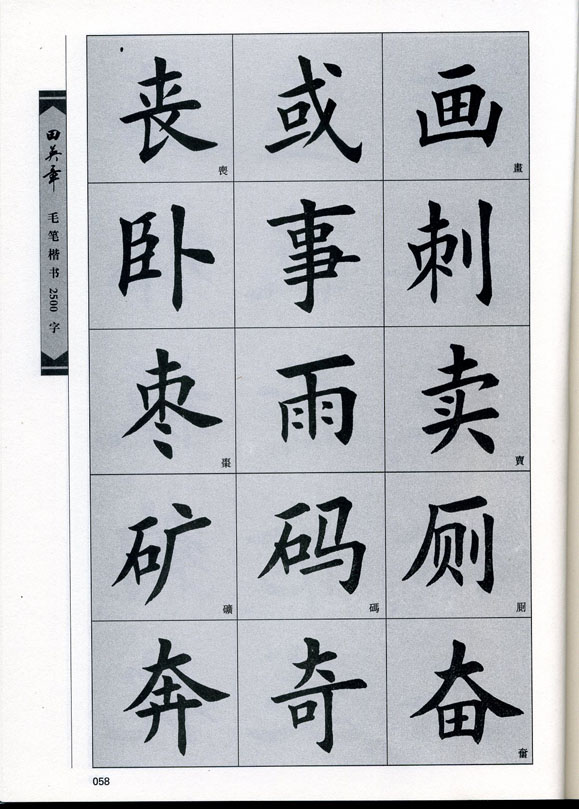 田英章 毛笔楷书 2500 字
丧 喪 或 画 畫
卧 事 刺
枣 棗 雨 卖 賣
矿 礦 码 碼 厕 厠
奔 奇 奋 奮
058